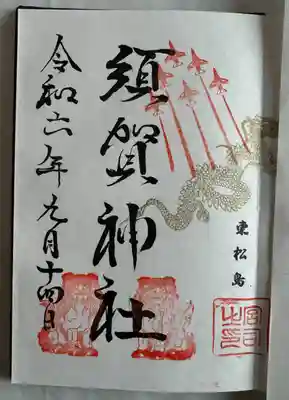 東松島
須賀神社
令和六年九月十四日
宮司之印